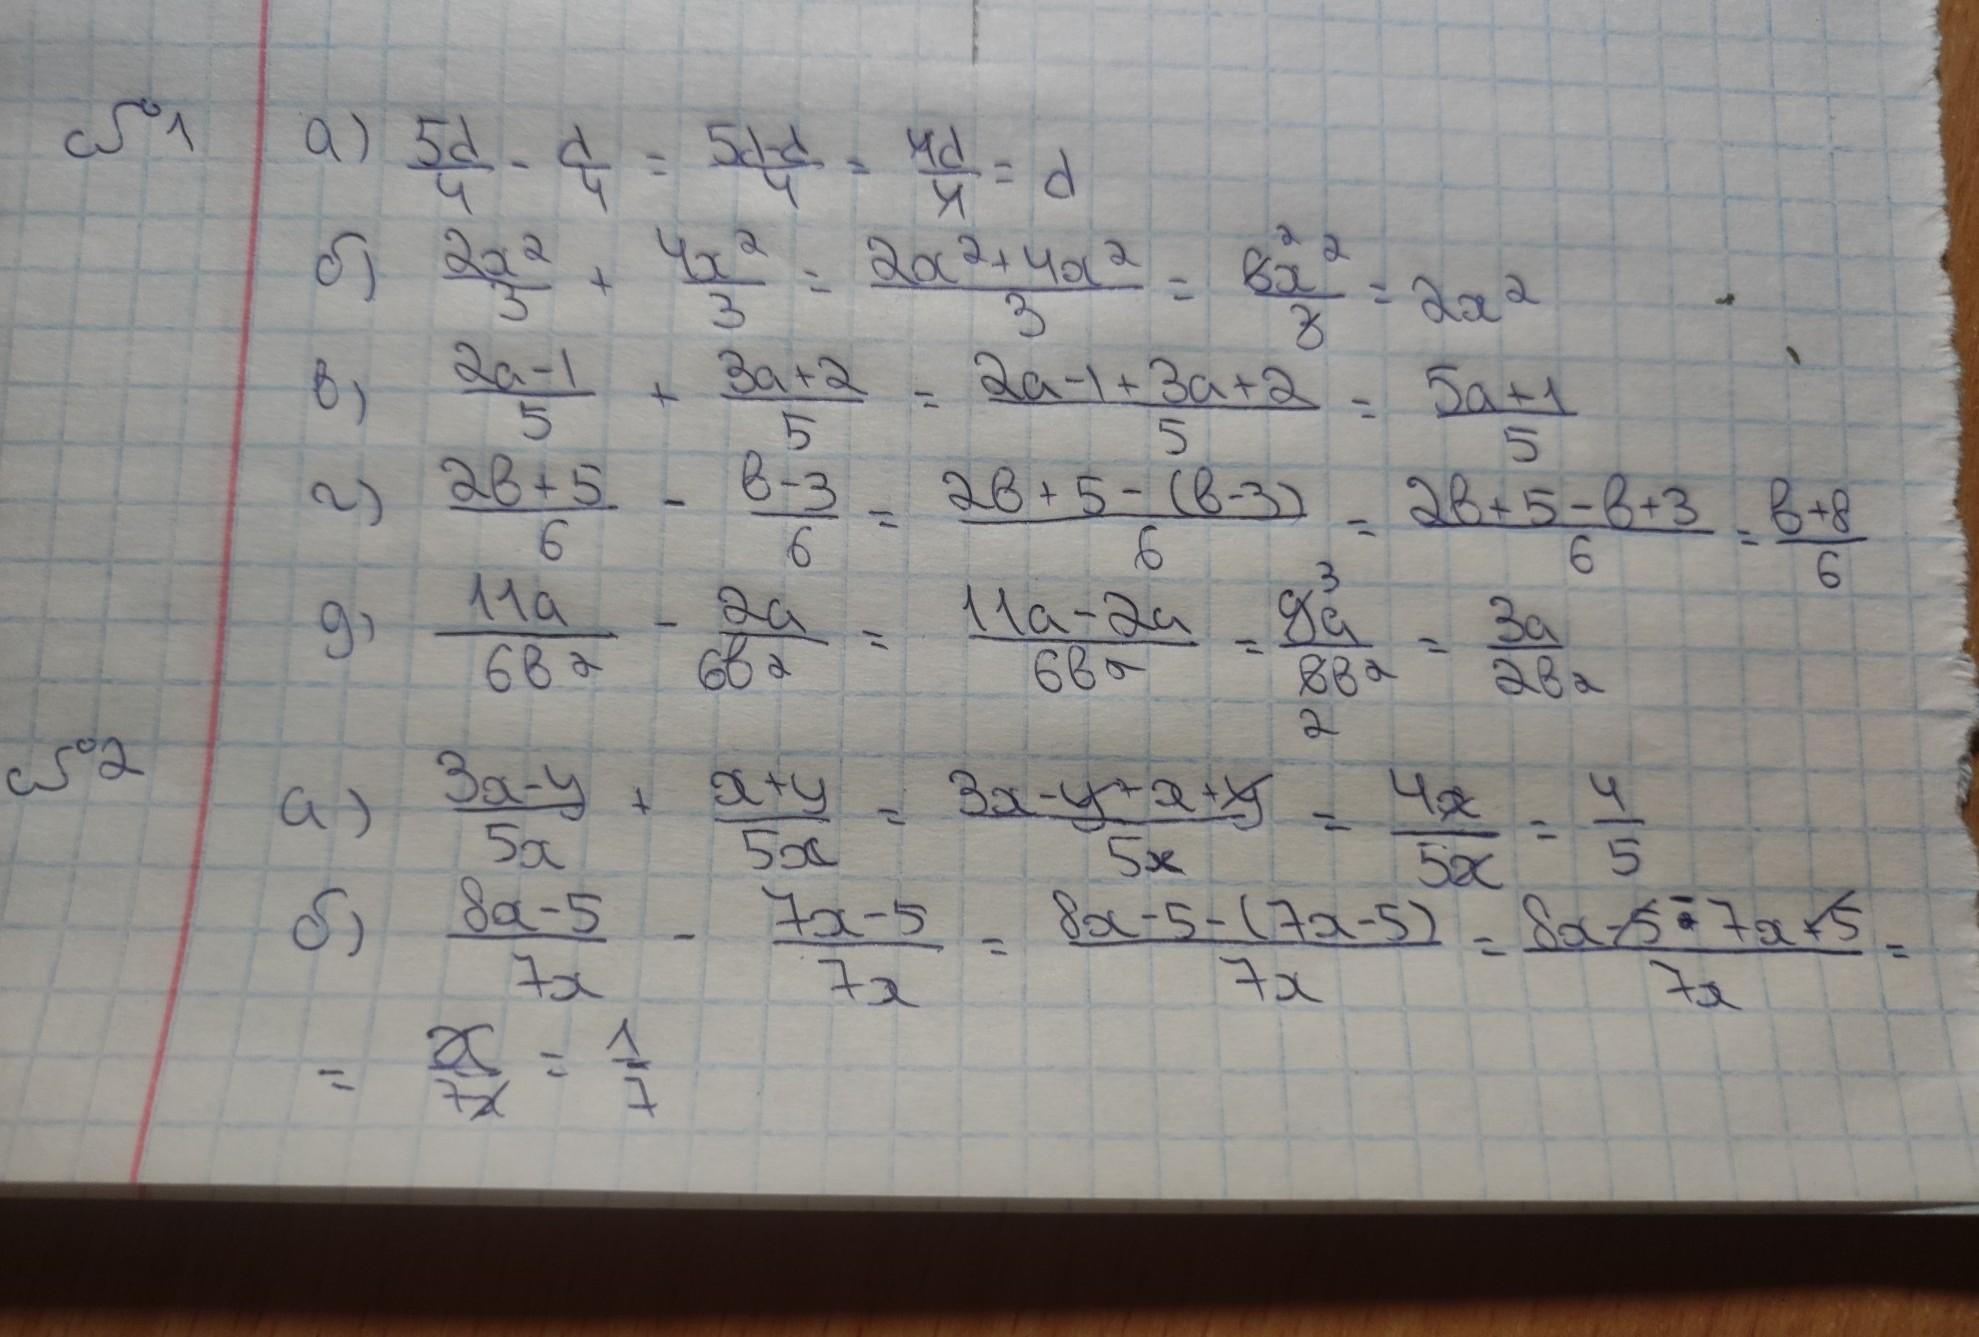 №1 а) 5d/4 - d/4 = 5d-d/4 = 4d/4 = d
б) 2x²/3 + 4x²/3 = 2x²+4x²/3 = 6²x²/3 = 2x²
в) 2a-1/5 + 3a+2/5 = 2a-1+3a+2/5 = 5a+1/5
г) 2в+5/6 - в-3/6 = 2в+5-(в-3)/6 = 2в+5-в+3/6 = в+8/6
д) 11a/6в² - 2a/6в² = 11a-2a/6в² = 9³a/6₂в² = 3a/2в²
№2 а) 3x-y/5x + x+y/5x = 3x-y+x+y/5x = 4x/5x = 4/5
б) 8x-5/7x - 7x-5/7x = 8x-5-(7x-5)/7x = 8x-5-7x+5/7x =
= x/7x = 1/7